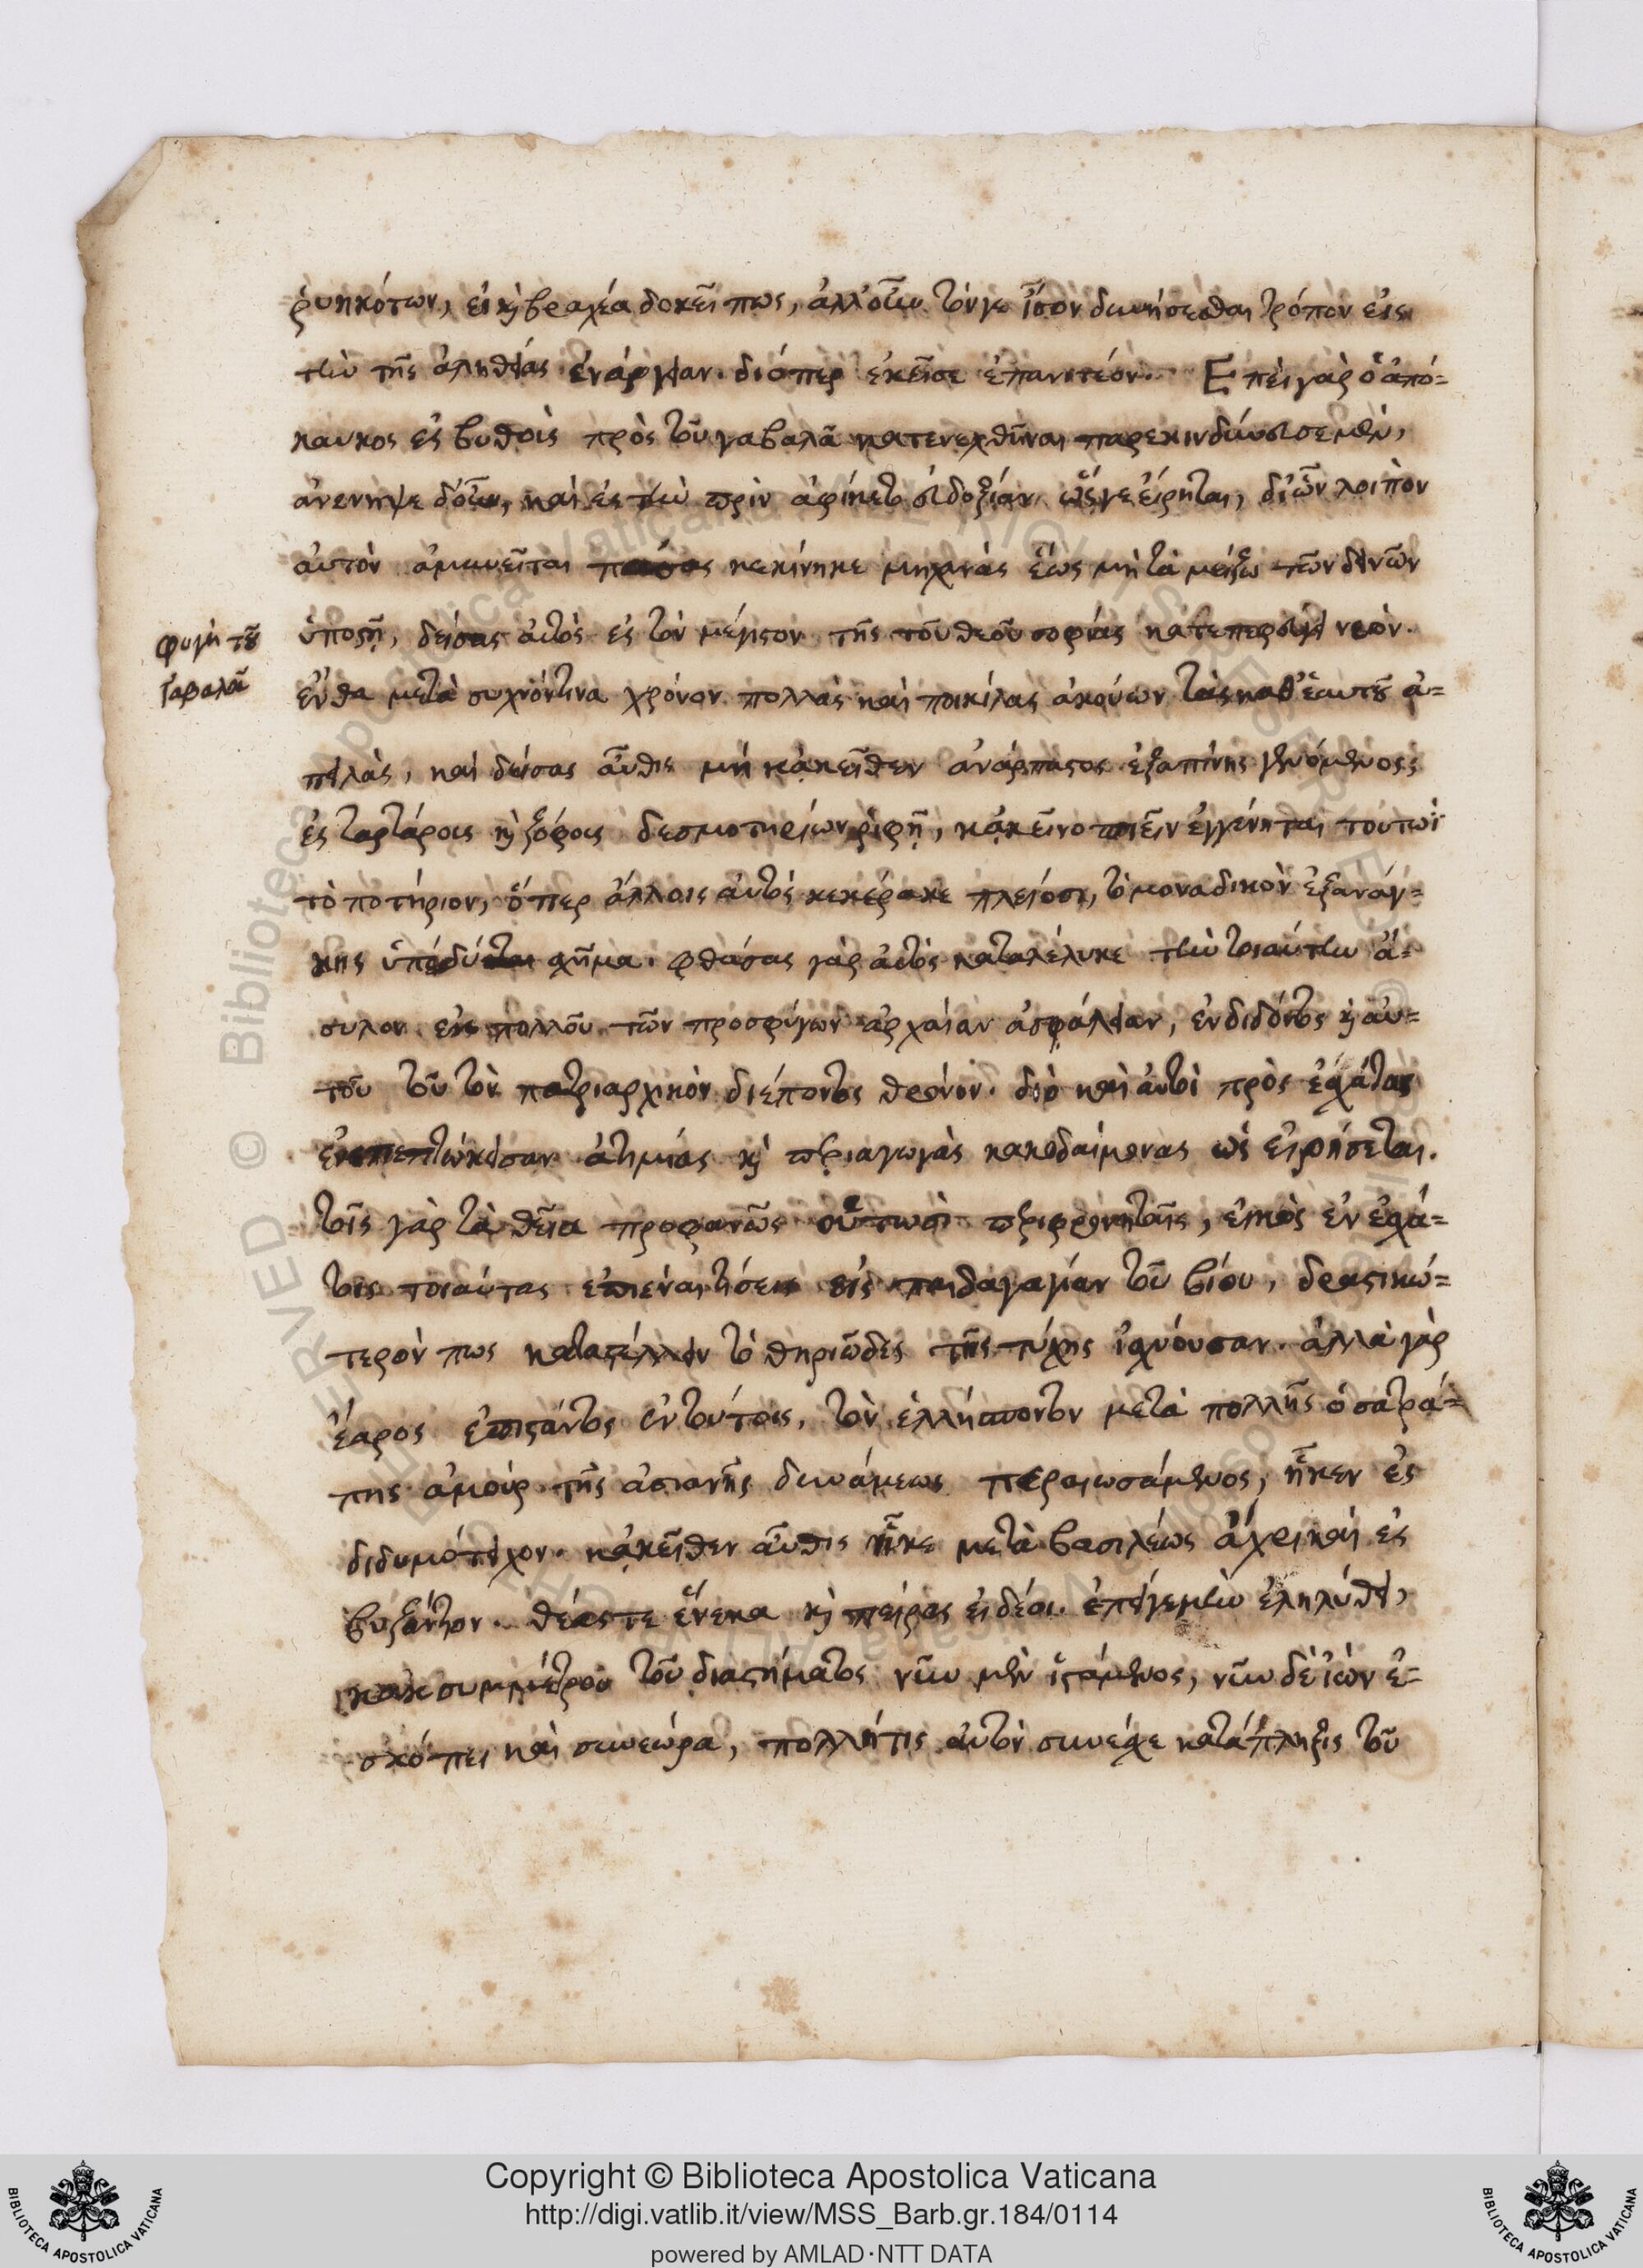 ῥυηκότων, εἰ κ̀ βραχέα δοκεῖ πως, ἀλλ' οὖν τόνγε ἴσον δυνήσεσθαι τρόπον εἰς
τὴν τῆς ἀληθείας ἐνάργειαν. διόπερ ἐκεῖσε ἐπανιτέον. Ἐπεὶ γὰρ ὁ ἀπό=
καυκος ἐς βυθοὺς πρὸς τοῦ γαβαλᾶ κατενεχθῆναι παρεκινδύνευσε μὲν,
ἀνένηψε δ' οὖν, καὶ ἐς τὴν πρὶν ἀφίκετο εὐδοξίαν ὥς γε εἴρηται, δι' ὧν λοιπὸν
αὐτὸν ἀμυνεῖται πάσας κεκίνηκε μηχανάς ἕως μὴ τὰ μείζω τῶν δεινῶν
ὑποστῇ, δείσας αὐτὸς ἐς τὸν μέγιστον τῆς τοῦ θεοῦ σοφίας καταπεφεύγει νεών.
ἔνθα μετὰ συχνόν τινα χρόνον πολλὰς καὶ ποικίλας ἀκούων τὰς καθ' ἑαυτοῦ ἀ=
πειλὰς, καὶ δείσας αὖθις μὴ κἀκεῖθεν ἀνάρπαστος ἐξαπίνης γενόμενος
ἐς ταρτάροις κ̀ ζόφοις δεσμοτηρίων ῥιφῇ, κἀκεῖνο πιεῖν ἐγγένηται τούτωι
τὸ ποτήριον, ὅπερ ἄλλοις αὐτὸς κεκέρακε πλείοσι, τὸ μοναδικὸν ἐξ ἀνάγ=
κης ὑποδύεται σχῆμα. φθάσας γὰρ αὐτὸς καταλέλυκε τὴν τοιαύτην ἄ=
συλον ἐκ πολλοῦ τῶν προσφύγων ἀρχαίαν ἀσφάλειαν, ἐνδιδόντος κ̀ αὐ=
τοῦ τοῦ τὸν πατριαρχικὸν διέποντος θρόνον. διὸ καὶ αὐτοὶ πρὸς ἐσχάτας
ἐκπεπτώκεσαν ἀτιμίας κ̀ περιαγωγὰς κακοδαίμονας ὡς εἰρήσεται.
τοῖς γὰρ τὰ θεῖα προφανῶς οὕτωσὶ περιφρονηταῖς, εἰκὸς ἐν ἐσχά=
τοις τοιαύτας εἰς παιδαγωγίαν τοῦ βίου, δραστικώ=
τερόν πως καταστέλλειν τὸ θηριῶδες τῆς τύχης ἰσχύουσαν. ἀλλὰ γὰρ
ἔαρος ἐπιστάντος ἐν τούτοις, τὸν ἑλλήσποντον μετὰ πολλῆς ὁ σατρά=
πης ἀμοὺρ τῆς ἀσιανῆς δυνάμεως περαιωσάμενος, ἧκεν ἐς
διδυμότειχον. κἀκεῖθεν αὖθις ἧκε μετὰ βασιλέως ἄχρι καὶ ἐς
βυζάντιον. θέας τε ἕνεκα κ̀ πείρας εἰ δέοι. ἐπεί γε μὴν ἐληλύθει,
κἀκ συμμέτρου τοῦ διαστήματος νῦν μὲν ἱστάμενος, νῦν δὲ ἰὼν ἐ=
σκόπει καὶ συνεώρα, πολλή τις αὐτὸν συνέσχε κατάπληξις τοῦ
φυγὴ τοῦ
Γαβαλᾶ
Copyright © Biblioteca Apostolica Vaticana
http://digi.vatlib.it/view/MSS_Barb.gr.184/0114
powered by AMLAD·NTT DATA
BIBLIOTECA APOSTOLICA VATICANA
BIBLIOTECA APOSTOLICA VATICANA